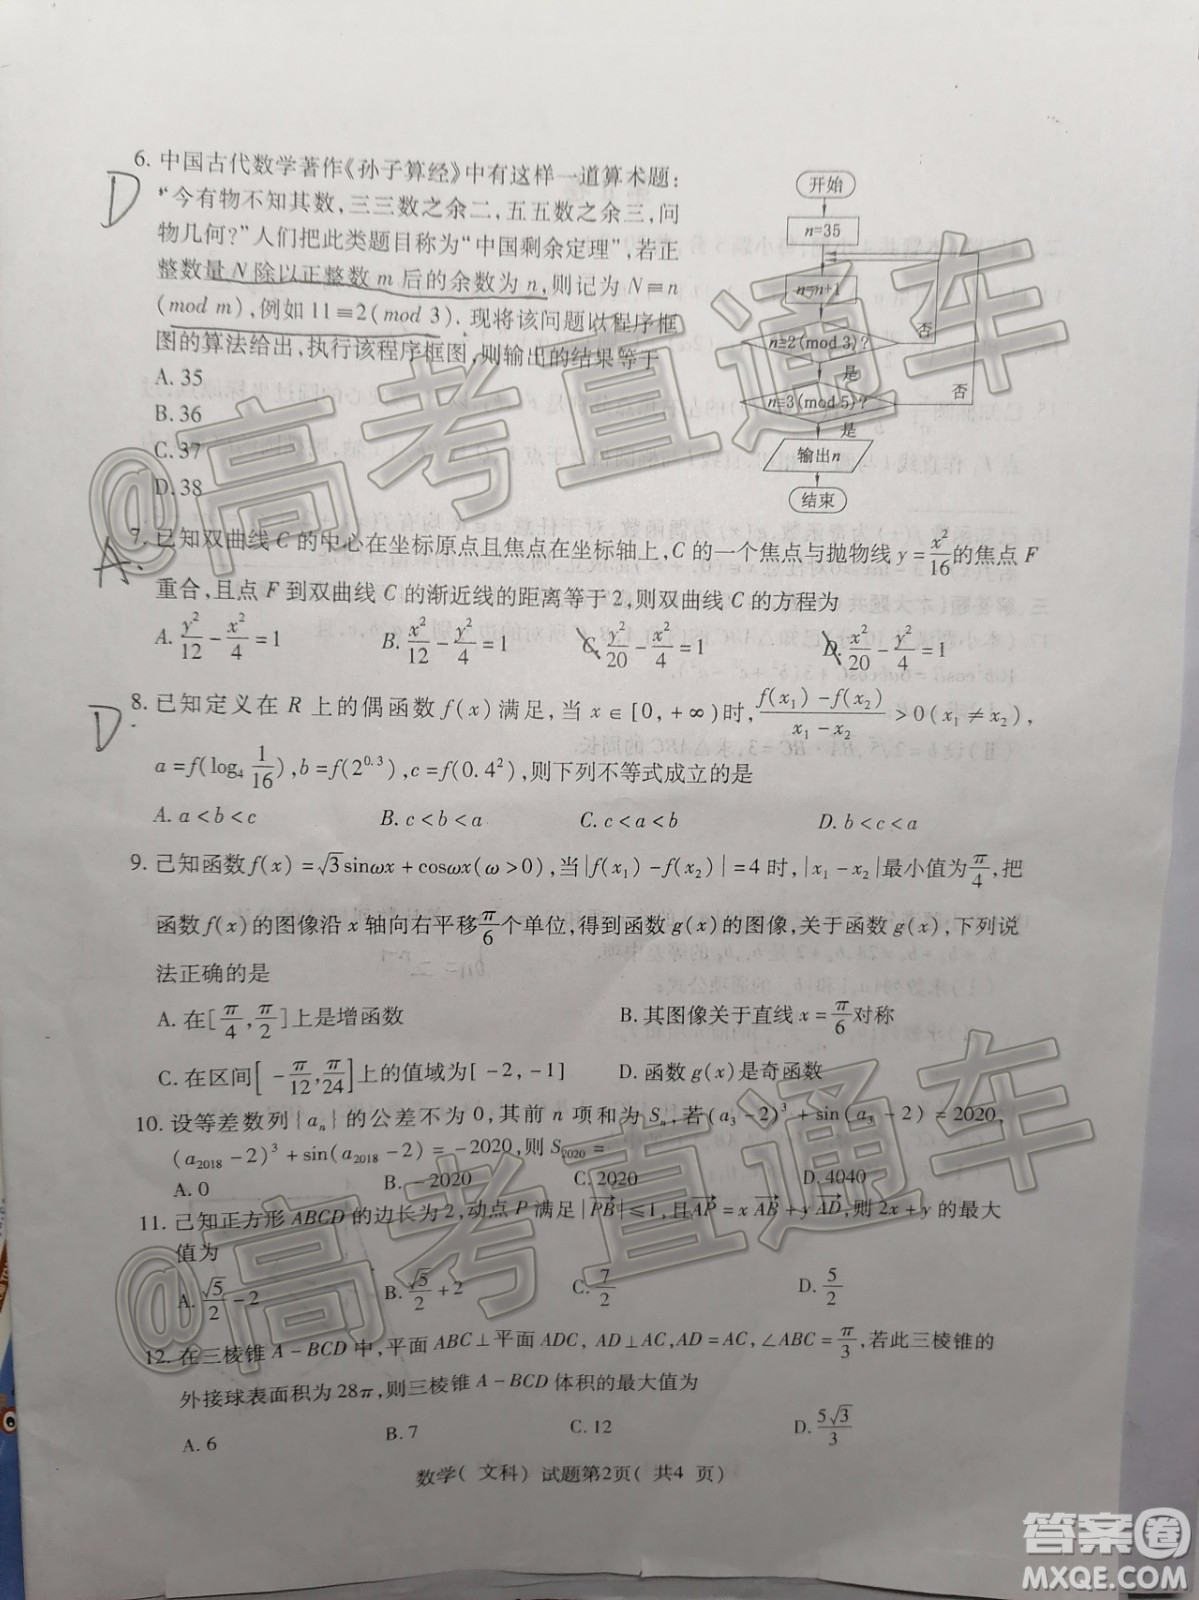 6. 中国古代数学著作《孙子算经》中有这样一道算术题：
D
“今有物不知其数，三三数之余二，五五数之余三，问
物几何？”人们把此类题目称为“中国剩余定理”，若正
整数量 N 除以正整数 m 后的余数为 n，则记为 N≡n
(mod m)，例如 11≡2(mod 3)．现将该问题以程序框
图的算法给出，执行该程序框图，则输出的结果等于
A. 35
B. 36
C. 37
D. 38
开始
n=35
n=n+1
n≡2(mod 3)?
否
是
n≡3(mod 5)?
否
是
输出n
结束
7. 已知双曲线 C 的中心在坐标原点且焦点在坐标轴上，C 的一个焦点与抛物线 y=x²/16的焦点 F
A.
重合，且点 F 到双曲线 C 的渐近线的距离等于 2，则双曲线 C 的方程为
A. y²/12-x²/4=1 B. x²/12-y²/4=1 C. y²/20-x²/4=1 D. x²/20-y²/4=1
8. 已知定义在 R 上的偶函数 f(x) 满足，当 x∈[0，+∞)时，(f(x₁)-f(x₂))/(x₁-x₂)>0(x₁≠x₂)，
D
a=f(log₄ 1/16)，b=f(2^0.3)，c=f(0.4²)，则下列不等式成立的是
A. a<b<c B. c<b<a C. c<a<b D. b<c<a
9. 己知函数f(x)=√3sinωx+cosωx(ω>0)，当|f(x₁)-f(x₂)|=4 时，|x₁-x₂|最小值为π/4，把
函数 f(x)的图像沿 x 轴向右平移π/6个单位，得到函数 g(x)的图像，关于函数 g(x)，下列说
法正确的是
A. 在[π/4，π/2]上是增函数 B. 其图像关于直线 x=π/6对称
C. 在区间[-π/12，π/24]上的值域为[-2，-1] D. 函数 g(x)是奇函数
10. 设等差数列{aₙ}的公差不为 0，其前 n 项和为 Sₙ，若(a₃-2)³+sin(a₃-2)=2020，
(a₂₀₁₈-2)³+sin(a₂₀₁₈-2)=-2020，则 S₂₀₂₀=
A. 0 B. -2020 C. 2020 D. 4040
11. 己知正方形 ABCD 的边长为 2，动点 P 满足|PB|≤1，且AP=xAB+yAD，则 2x+y 的最大
值为
A. √5/2-2 B. √5/2+2 C. 7/2 D. 5/2
12. 在三棱锥 A-BCD 中，平面 ABC⊥平面 ADC，AD⊥AC，AD=AC，∠ABC=π/3，若此三棱锥的
外接球表面积为 28π，则三棱锥 A-BCD 体积的最大值为
A. 6 B. 7 C. 12 D. 5√3/3
数学( 文科) 试题第2页( 共4 页)
@高考直通车
@高考直通车
答案圈
MXQE.COM